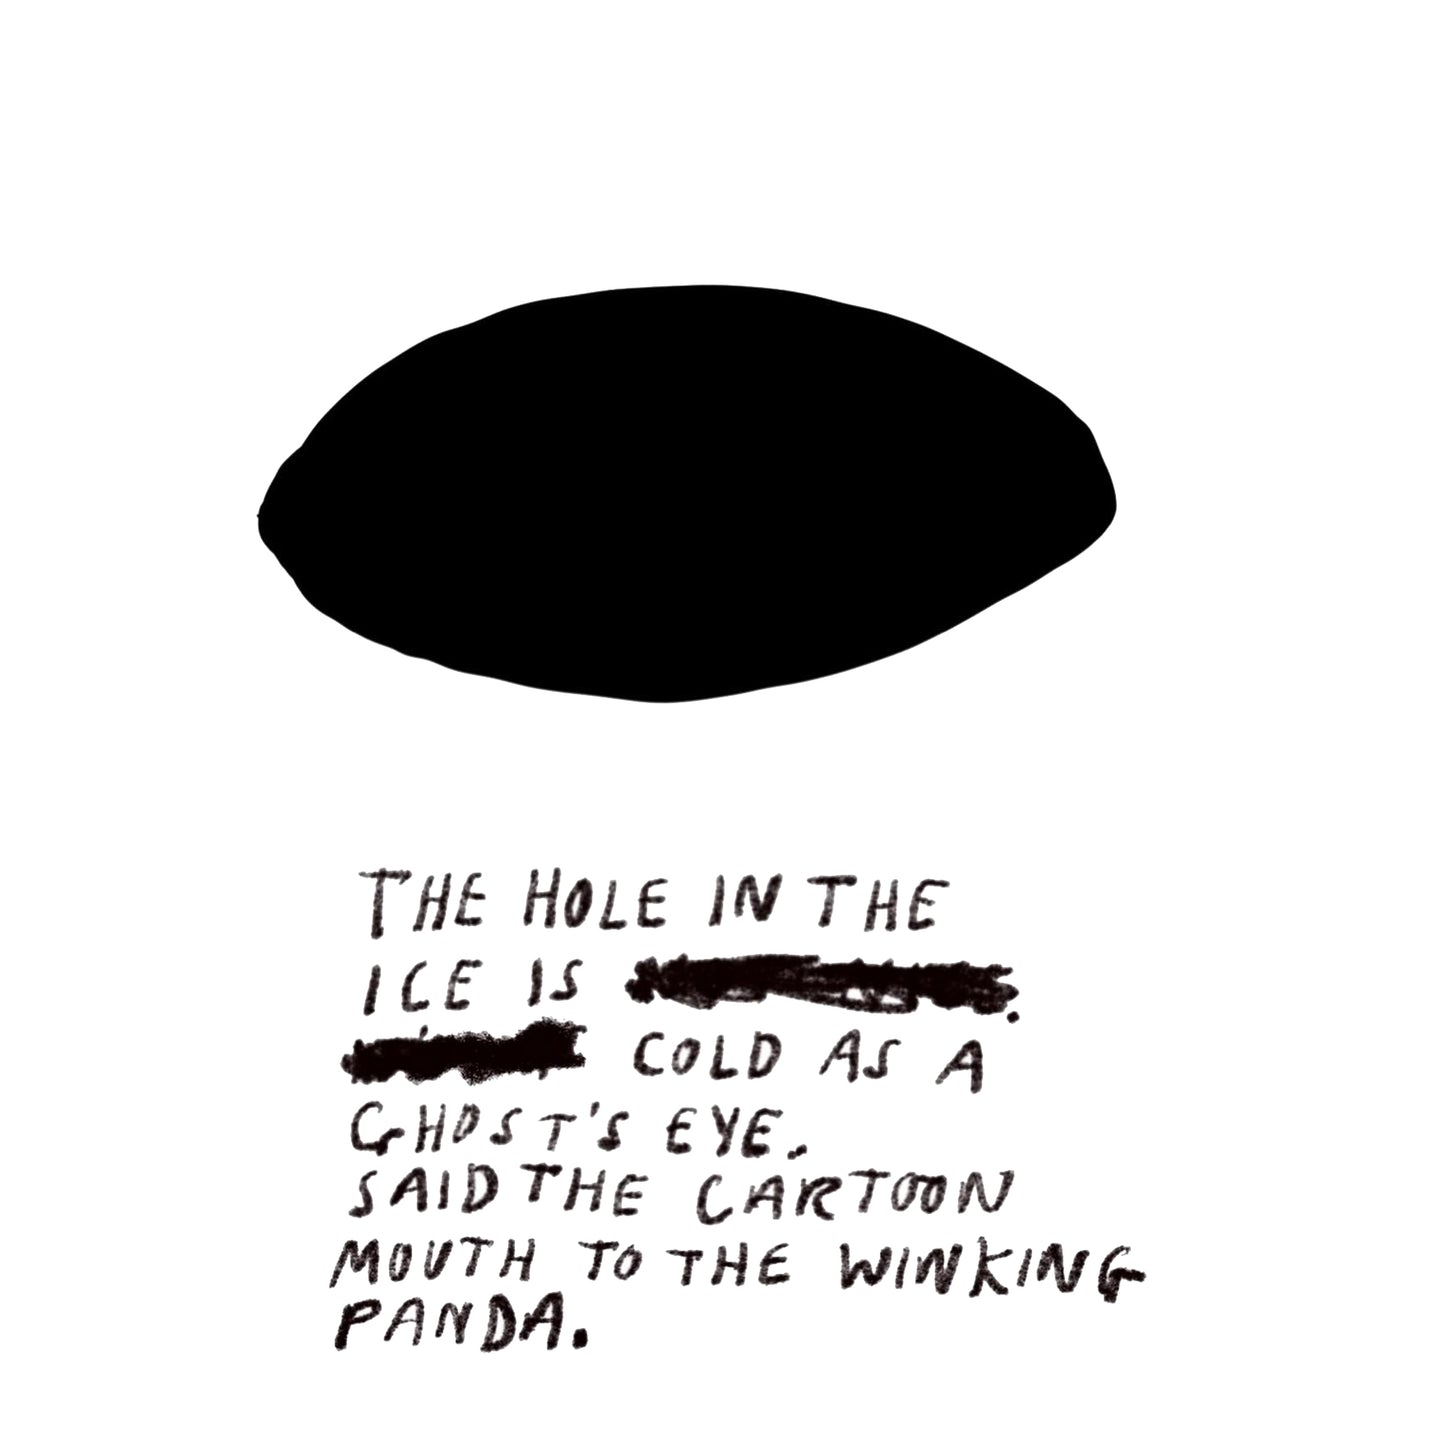 THE HOLE IN THE
ICE IS .
COLD AS A
GHOST'S EYE.
SAID THE CARTOON
MOUTH TO THE WINKING
PANDA.